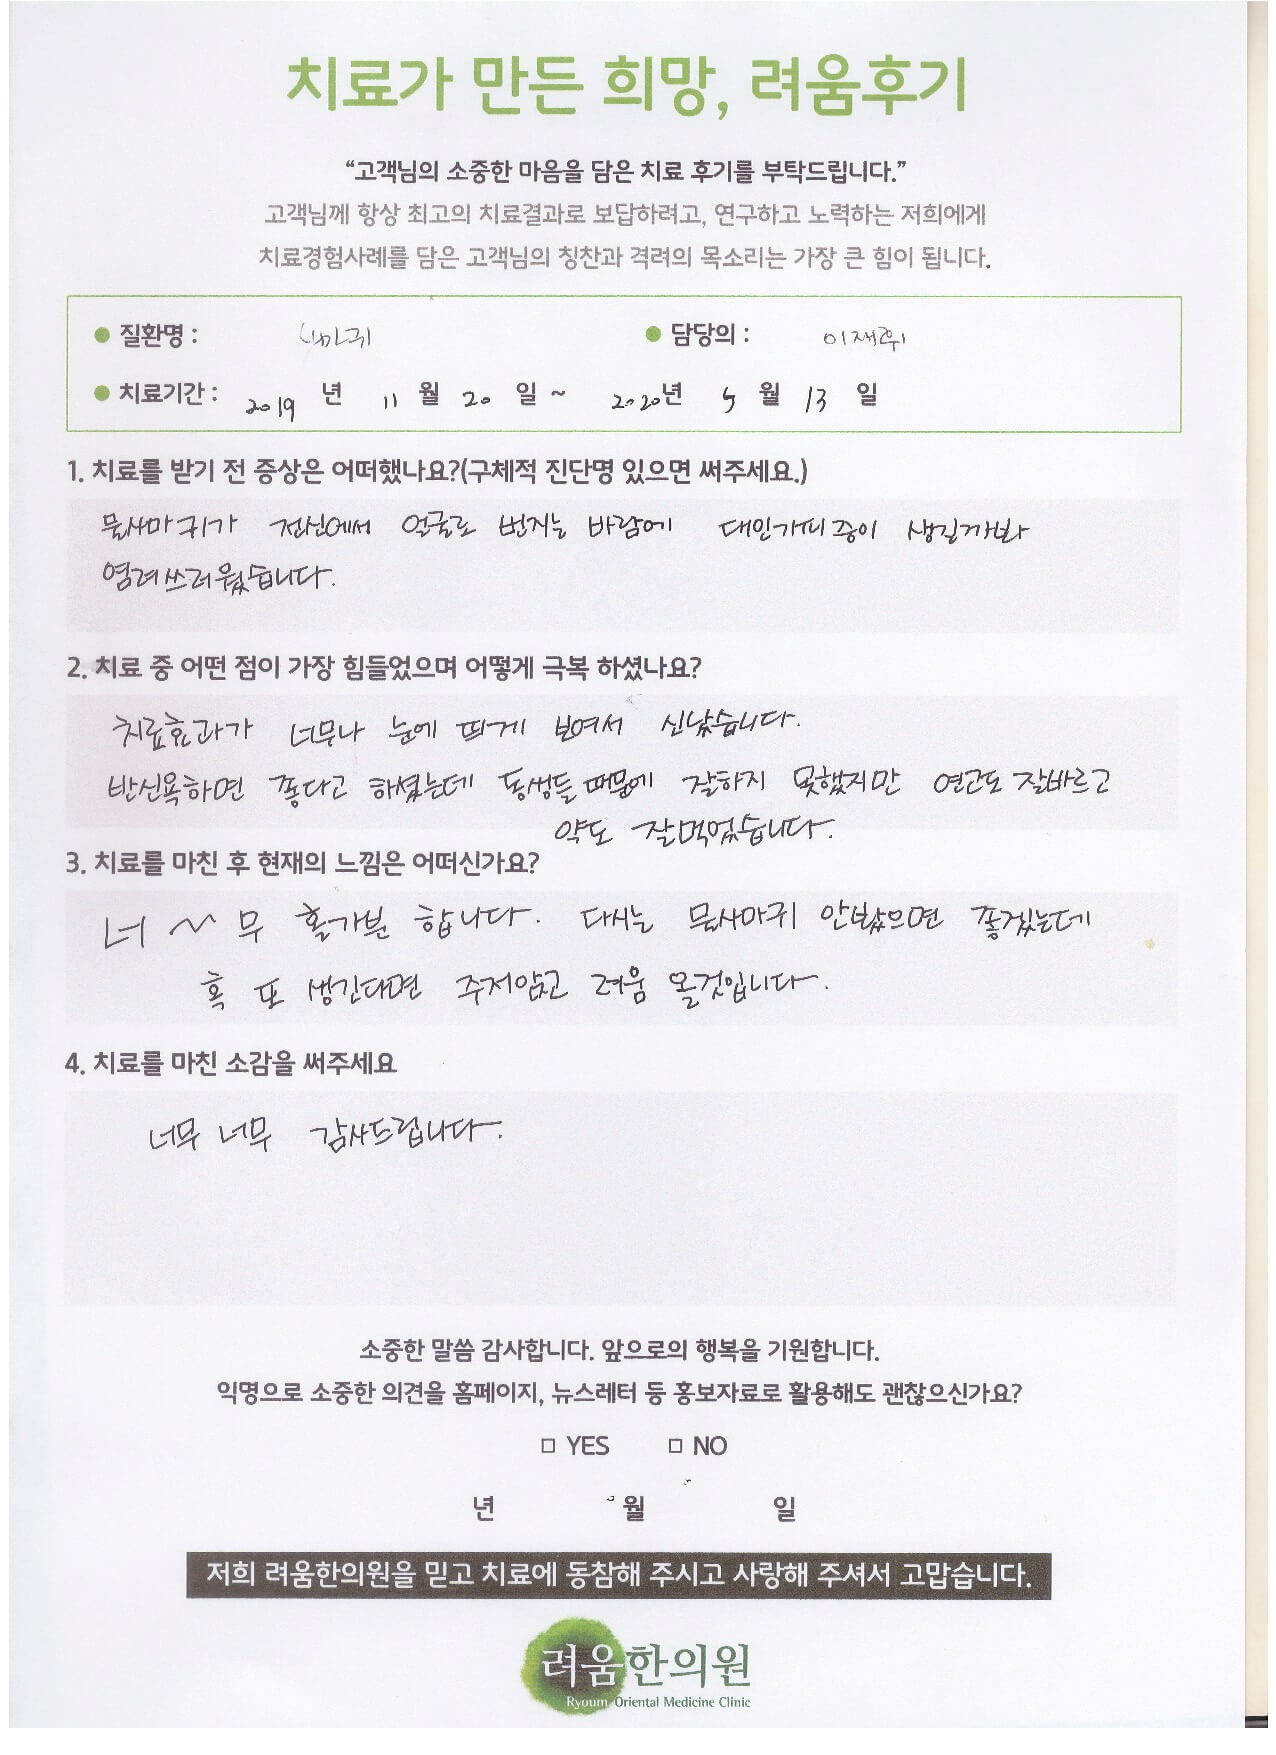 치료가 만든 희망, 려움후기
“고객님의 소중한 마음을 담은 치료 후기를 부탁드립니다.”
고객님께 항상 최고의 치료결과로 보답하려고, 연구하고 노력하는 저희에게
치료경험사례를 담은 고객님의 칭찬과 격려의 목소리는 가장 큰 힘이 됩니다.
질환명 : 담당의 :
치료기간 : 2019 년 11 월 20 일 ~ 2020년 5 월 13 일
1. 치료를 받기 전 증상은 어떠했나요?(구체적 진단명 있으면 써주세요.)
물사마귀가 전신에서 얼굴로 번지는 바람에 대인기피증이 생길까봐
염려쓰러웠습니다.
2. 치료 중 어떤 점이 가장 힘들었으며 어떻게 극복 하셨나요?
치료효과가 너무나 눈에 띄게 보여서 신났습니다.
반신욕하면 좋다고 하셨는데 동생들 때문에 잘하지 못했지만 연고도 잘바르고
약도 잘먹었습니다.
3. 치료를 마친 후 현재의 느낌은 어떠신가요?
너 ~ 무 홀가분 합니다. 다시는 물사마귀 안봤으면 좋겠는데
혹 또 생긴다면 주저않고 려움 올것입니다.
4. 치료를 마친 소감을 써주세요
너무 너무 감사드립니다.
소중한 말씀 감사합니다. 앞으로의 행복을 기원합니다.
익명으로 소중한 의견을 홈페이지, 뉴스레터 등 홍보자료로 활용해도 괜찮으신가요?
□ YES □ NO
년 월 일
저희 려움한의원을 믿고 치료에 동참해 주시고 사랑해 주셔서 고맙습니다.
려움한의원
Ryoum Oriental Medicine Clinic